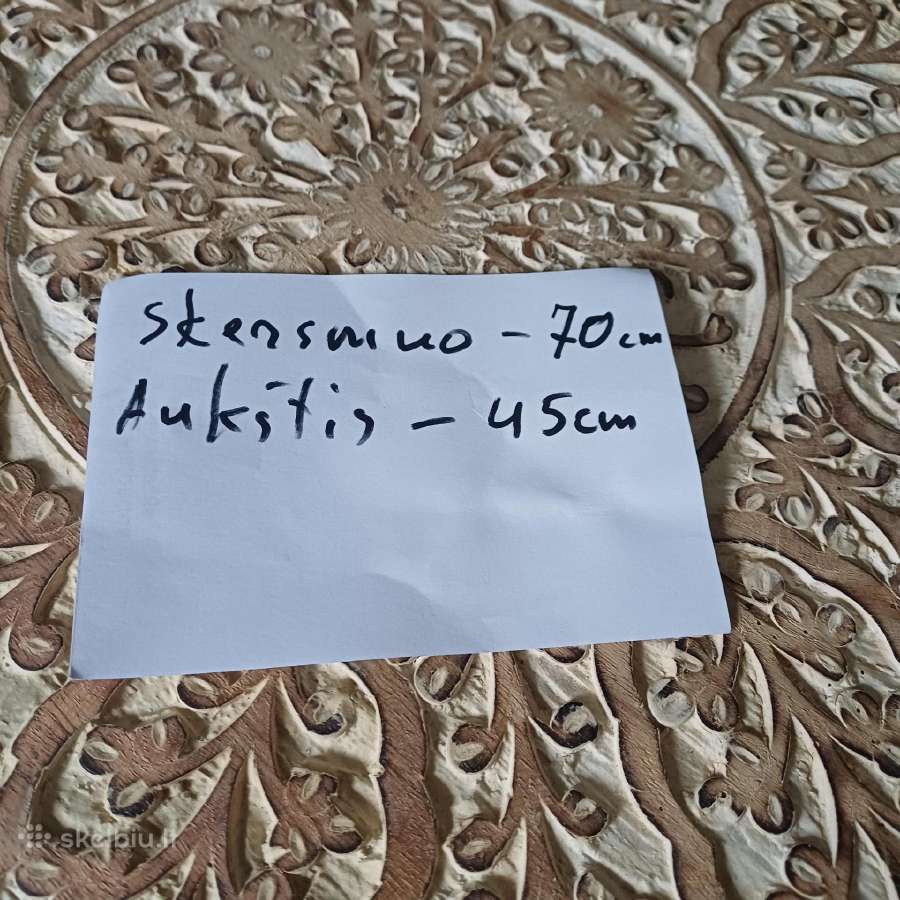 Skersmuo - 70cm
Aukštis - 45cm
skelbiu.lt